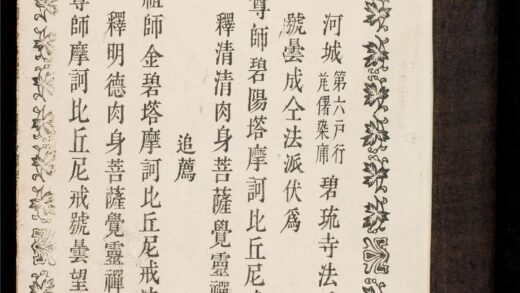 河城第六戸行染庫碧琉寺法
號曇成仝法派伏爲
尊師碧陽塔摩訶比丘尼
釋清清肉身菩薩覺靈禪
追薦
祖師金碧塔摩訶比丘尼戒
釋明德肉身菩薩覺靈禪
尊師摩訶比丘尼戒號曇望